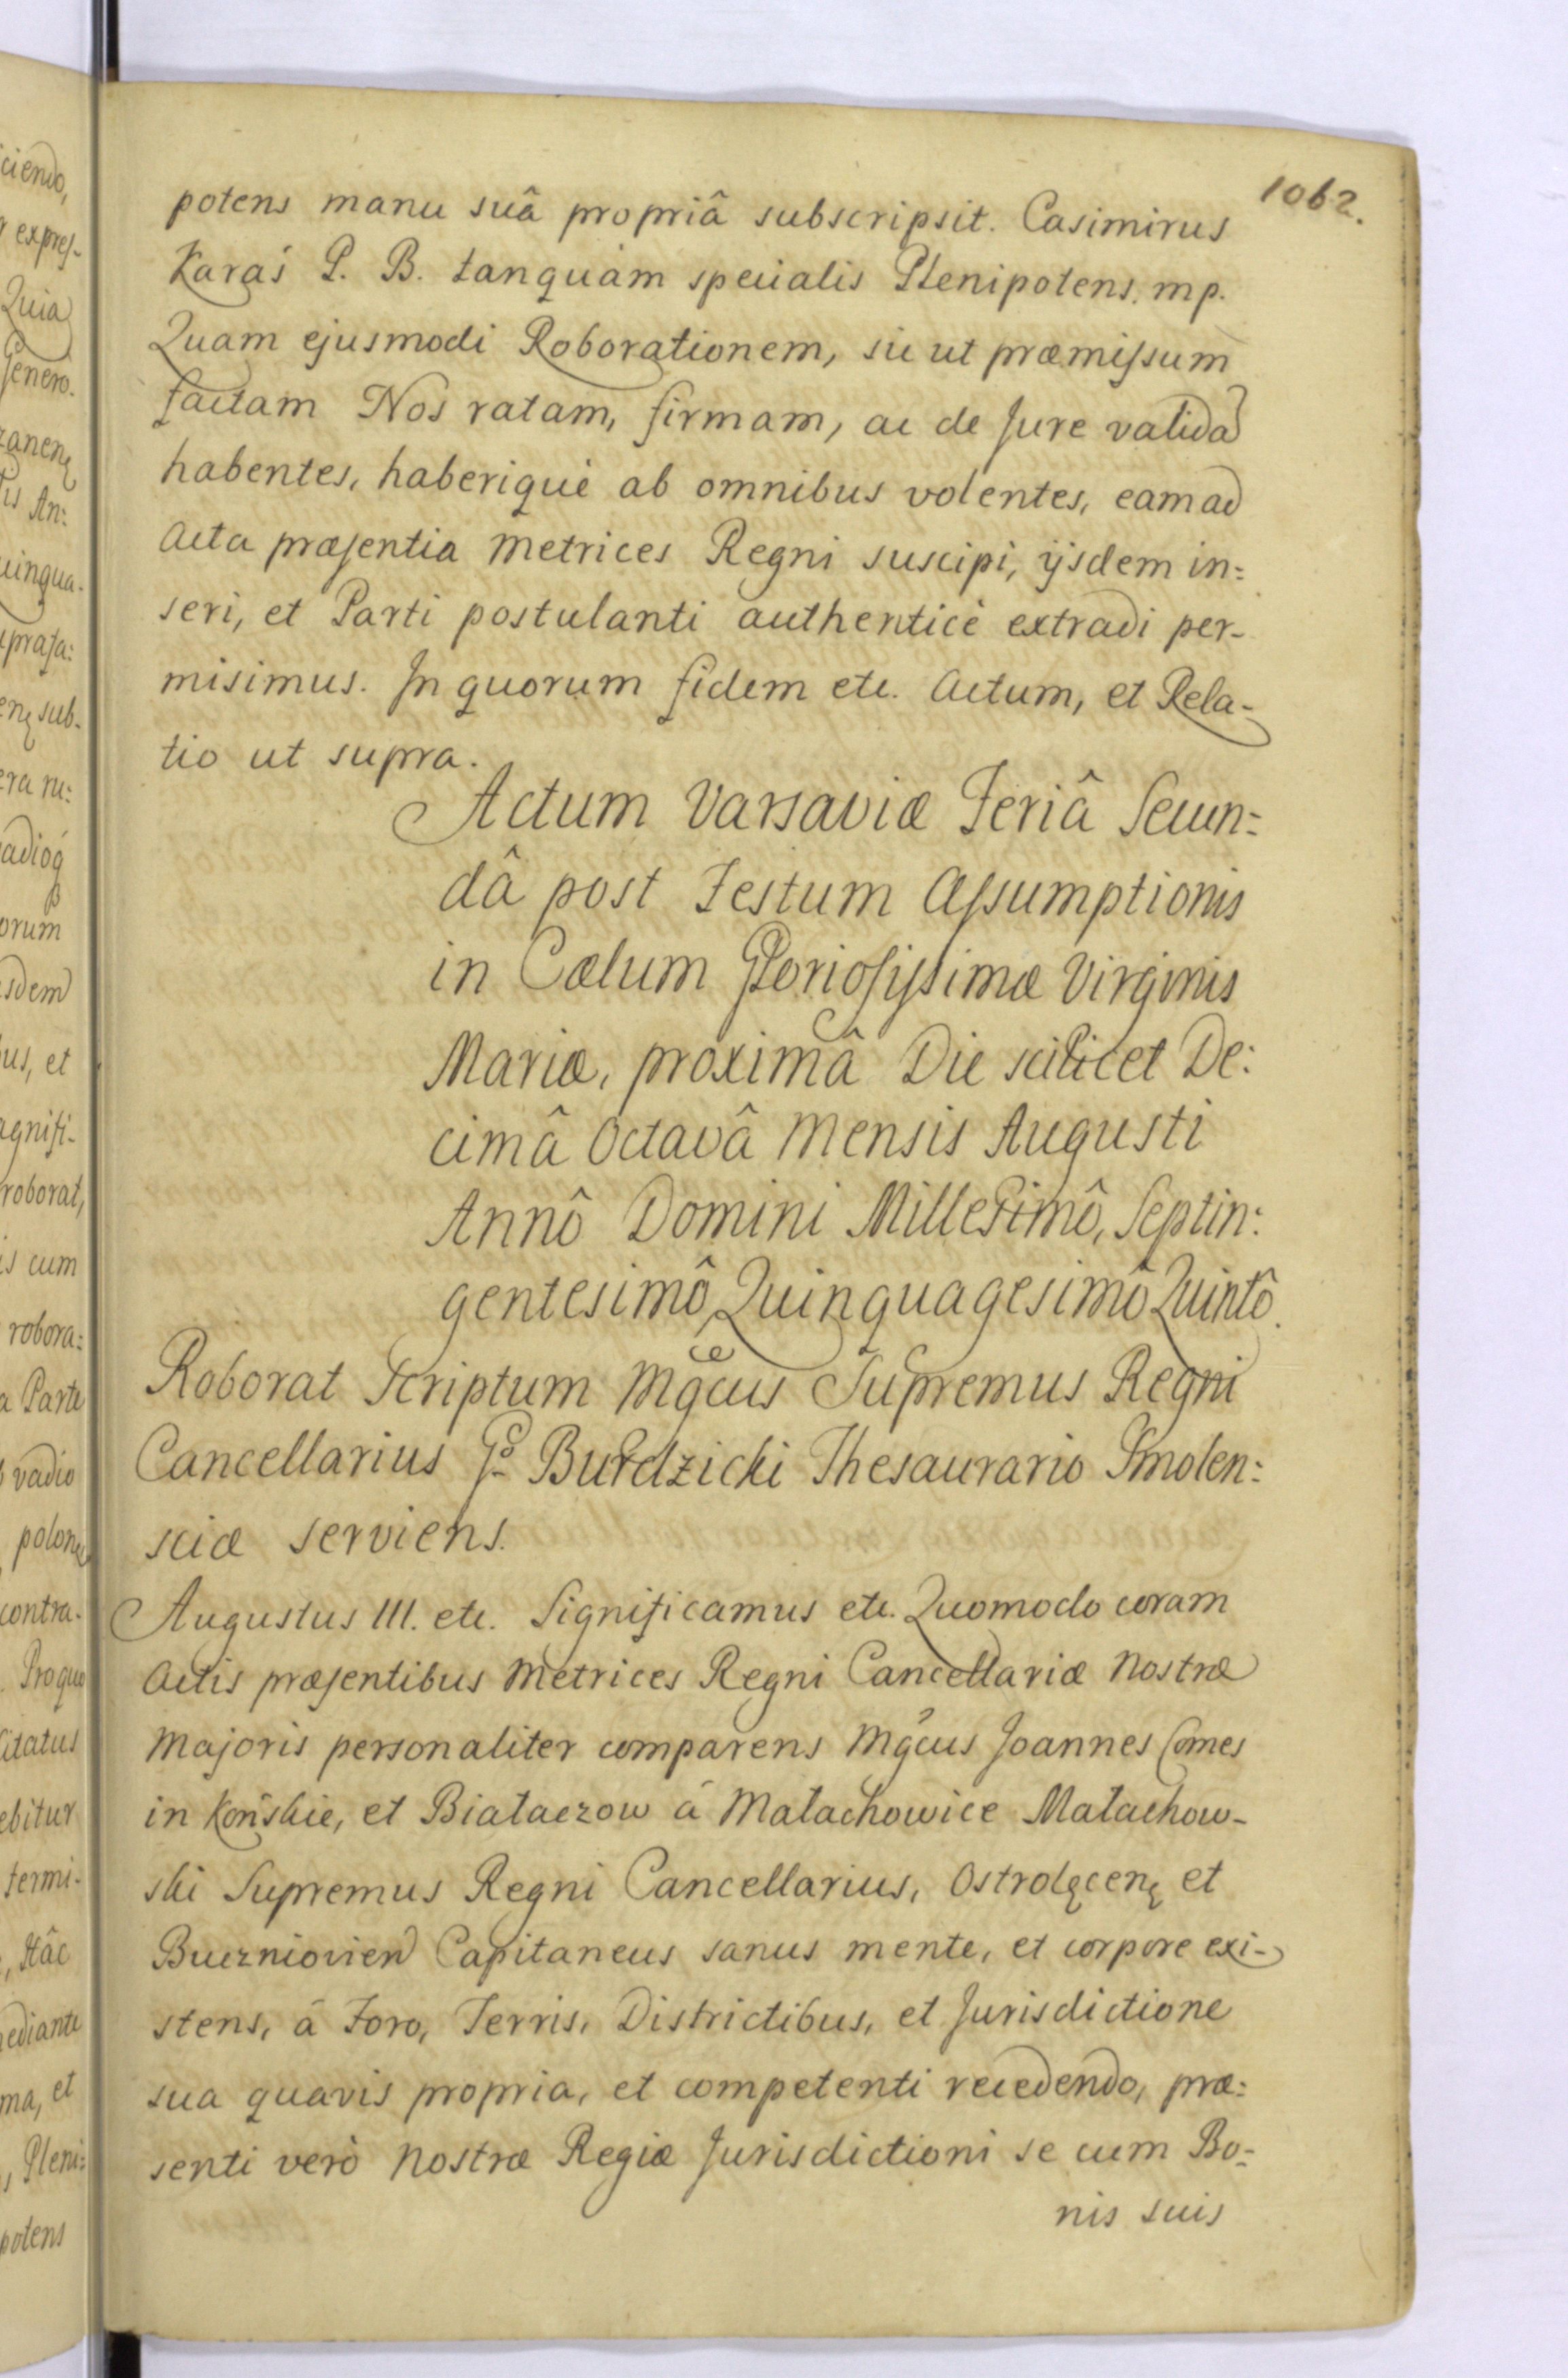 1062.
potens manu suâ propriâ subscripsit. Casimirus
Karaś P. B. tanquàm specialis Plenipotens. mp.
Quam ejusmodi Roborationem, sic ut præmissum
factam Nos ratam, firmam, ac de Jure valida
habentes, haberiquè ab omnibus volentes, eam ad
Acta præsentia Metrices Regni suscipi, ijsdem in=
seri, et Parti postulanti authenticè extradi per-
misimus. In quorum fidem etc. Actum, et Rela-
tio ut supra.
Actum Varsaviæ Feriâ Secun=
dâ post Festum Assumptionis
in Cælum Gloriosissimæ Virginis
Mariæ, proximâ Die scilicet De:
cimâ Octavâ Mensis Augusti
Annô Domini Millesimô, Septin:
gentesimô, Quinquagesimô Quintô.
Roborat Scriptum Mgcus Supremus Regni
Cancellarius Go Burdzicki Thesaurario Smolen:
sciæ serviens.
Augustus III. etc. Significamus etc. Quomodo coram
Actis præsentibus Metrices Regni Cancellariæ Nostræ
Majoris personaliter comparens Mgcus Joannes Comes
in Końskie, et Białaczow á Małachowice Małachow-
ski Supremus Regni Cancellarius, Ostrolęcenę et
Capitaneus sanus mente, et corpore exi-
stens, á Foro, Terris, Districtibus, et Jurisdictione
sua quavis propria, et competenti recedendo, præ:
senti verò Nostræ Regiæ Jurisdictioni se cum Bo-
nis suis
ciendo,
expres-
Quia
Genero.
An:
sub-
orum
sdem
us, et
agnifi-
roborat,
is cum
robora:
a Parte
vadio
polonę
contra-
Pro quo
citatus
ebitur
termi-
Hâc
mediante
ma, et
Pleni=
potens